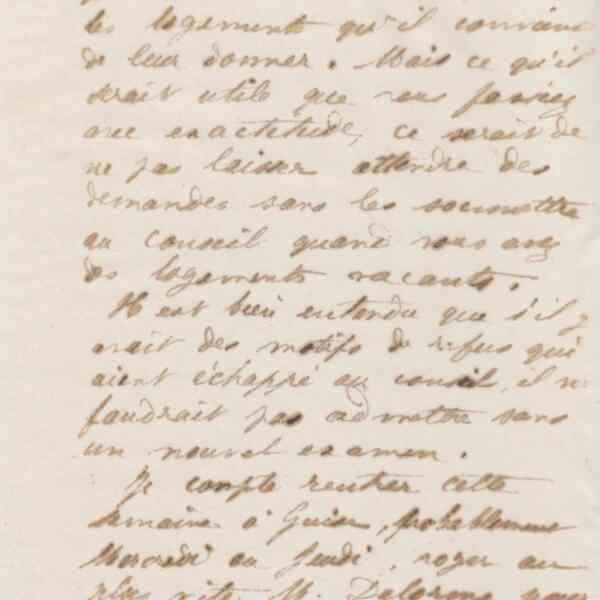 les logements qu'il convient
de leur donner. Mais ce qu'il
serait utile que vous fassiez
avec exactitude, ce serait de
ne pas laisser attendre des
demandes sans les soumettre
au conseil quand vous avez
des logements vacants.
Il est bien entendu que s'il y
avait des motifs de refus qui
aient échappé au conseil, il ne
faudrait pas admettre sans
un nouvel examen.
Je compte rentrer cette
semaine à Guise, probablement
Mercredi ou Jeudi, voyez au
plus vite M. Delorme pour